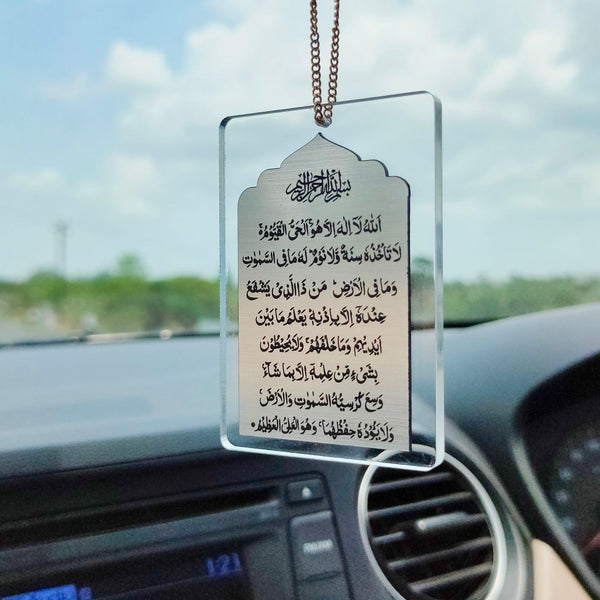 بسم الله الرحمن الرحيم
اَللهُ لَآ اِلٰهَ اِلَّا هُوَ اَلْحَيُّ الْقَيُّوْمُ ۚ
لَا تَاْخُذُهٗ سِنَةٌ وَّلَا نَوْمٌ لَهٗ مَا فِى السَّمٰوٰتِ
وَمَا فِى الْاَرْضِ مَنْ ذَا الَّذِىْ يَشْفَعُ
عِنْدَهٗٓ اِلَّا بِاِذْنِهٖ يَعْلَمُ مَا بَيْنَ
اَيْدِيْهِمْ وَمَا خَلْفَهُمْ وَلَا يُحِيْطُوْنَ
بِشَىْءٍ مِّنْ عِلْمِهٖٓ اِلَّا بِمَا شَآءَ
وَسِعَ كُرْسِيُّهُ السَّمٰوٰتِ وَالْاَرْضَ
وَلَا يَؤُدُهٗ حِفْظُهُمَا وَهُوَ الْعَلِىُّ الْعَظِيْمُ